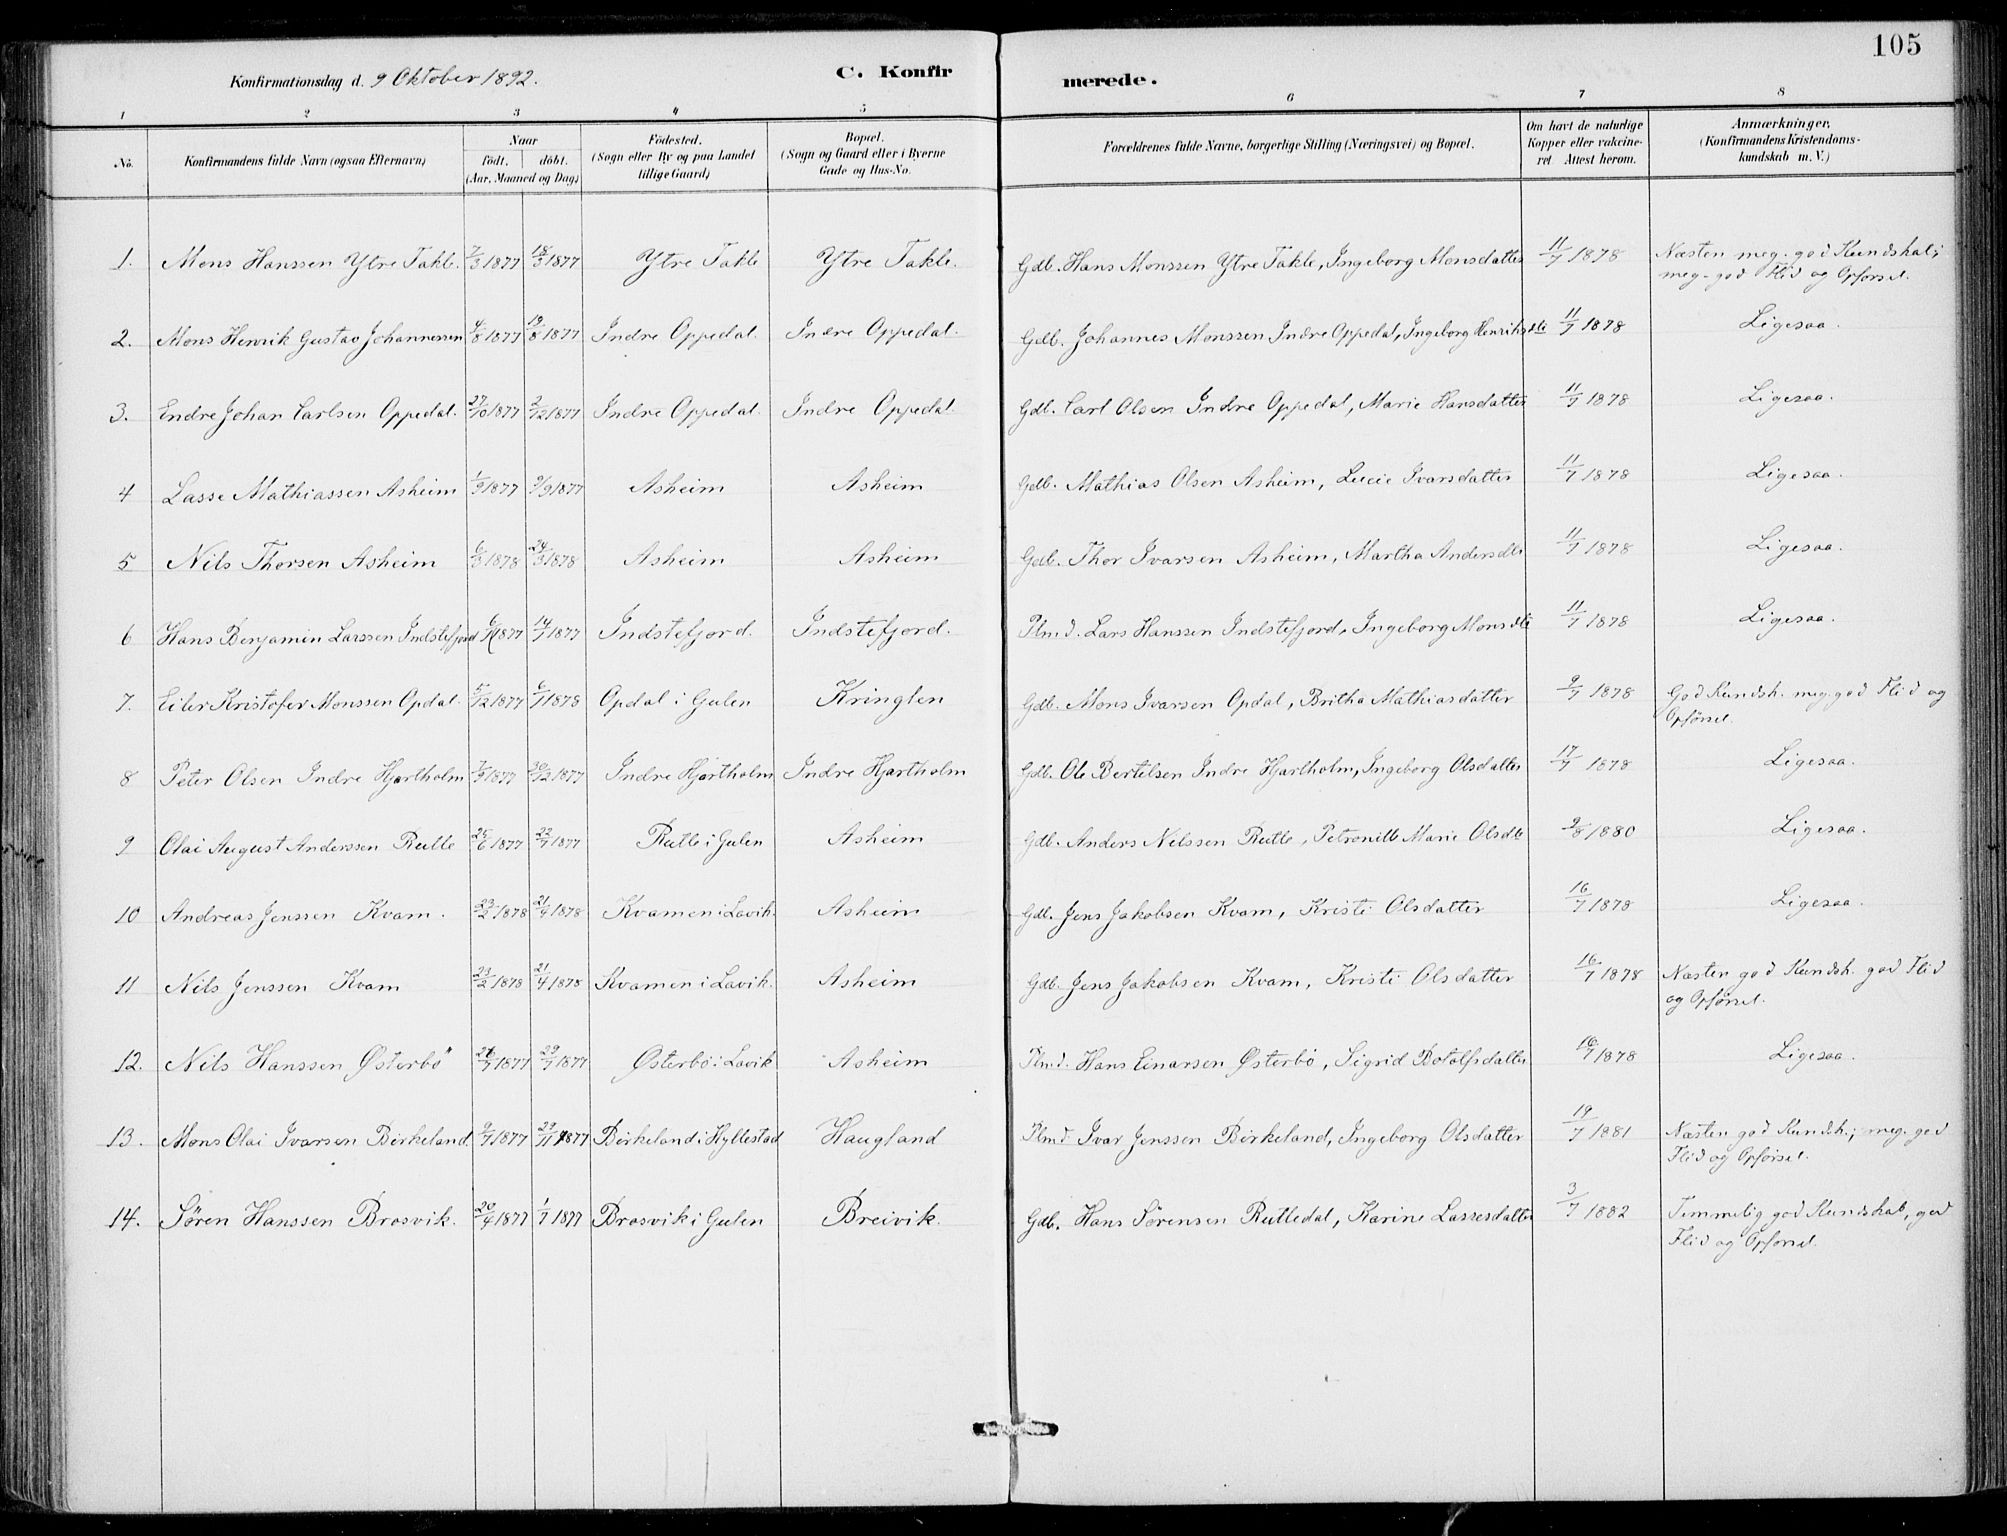 105
Konfirmationsdag d. 9 Oktober 1892. C. Konfirmerede.
1 2 3 4 5 6 7 8
No. Konfirmandens fulde Navn (ogsaa Efternavn) Naar födt. döbt. (Aar, Maaned og Dag) Födested. (Sogn eller By og paa Landet tillige Gaard) Bopæl. (Sogn og Gaard eller i Byerne Gade og Hus-No. Forældrenes fulde Navne, borgerlige Stilling (Næringsvei) og Bopæl. Om havt de naturlige Kopper eller vakcineret. Attest herom. Anmærkninger, (Konfirmandens Kristendomskundskab m. V.)
1. Mons Hanssen Ytre Takle. 7/3 1877 18/3 1877 Ytre Takle Ytre Takle. Gdb. Hans Monssen Ytre Takle, Ingeborg Monsdatter 11/7 1878 Næsten meg. god Kundskab;
meg. god Flid og Opførsel.
2. Mons Henrik Gustav Johannessen 4/8 1877 19/8 1877 Indre Oppedal. Indre Oppedal. Gdb. Johannes Monssen Indre Oppedal, Ingeborg Henriksdtr 11/7 1878 Ligesaa.
3. Endre Johan Carlsen Oppedal. 27/10 1877 2/12 1877 Indre Oppedal. Indre Oppedal. Gdb. Carl Olsen Indre Oppedal, Marie Hansdatter 11/7 1878 Ligesaa.
4 Lasse Mathiassen Asheim 1/9 1877 9/9 1877 Asheim Asheim Gdb. Mathias Olsen Asheim, Lucie Ivarsdatter 11/7 1878 Ligesaa.
5 Nils Thorsen Asheim 6/3 1878 24/3 1878 Asheim Asheim Gdb. Thor Ivarsen Asheim, Martha Andersdtr 11/7 1878 Ligesaa.
6 Hans Benjamin Larssen Indstefjord 1877 14/7 1877 Indstefjord. Indstefjord. Plmd. Lars Hanssen Indstefjord, Ingeborg Monsdtr 11/7 1878 Ligesaa.
7. Eiler Kristofer Monssen Opdal. 5/12 1877 6/1 1878 Opdal i Gulen Kringlen Gdb. Mons Ivarsen Opdal, Britha Mathiasdatter 9/7 1878 God Kundsk. meg. god Flid og
Opførsel.
8 Peter Olsen Indre Hjartholm 7/9 1877 30/12 1877 Indre Hjartholm Indre Hjartholm Gdb. Ole Bertelsen Indre Hjartholm, Ingeborg Olsdatter 17/7 1878 Ligesaa.
9 Olai August Anderssen Rutle 25/6 1877 22/7 1877 Rutle i Gulen Asheim Gdb. Anders Nilssen Rutle, Petronille Marie Olsdtr 9/8 1880 Ligesaa.
10 Andreas Jenssen Kvam. 23/2 1878 21/4 1878 Kvamen i Lavik. Asheim Gdb. Jens Jakobsen Kvam, Kristi Olsdatter 16/7 1878 Ligesaa.
11 Nils Jenssen Kvam 23/2 1878 21/4 1878 Kvamen i Lavik. Asheim Gdb. Jens Jakobsen Kvam, Kristi Olsdatter 16/7 1878 Næsten god Kundsk. god Flid
og Opførsel.
12. Nils Hanssen Østerbö 1877 29/7 1877 Østerbö i Lavik Asheim Plmd. Hans Einarsen Østerbö, Sigrid Botolfsdatter 16/7 1878 Ligesaa.
13. Mons Olai Ivarsen Birkeland 9/7 1877 29/7 1877 Birkeland i Hyllestad Haugland Plmd Ivar Jenssen Birkeland, Ingeborg Olsdatter 19/7 1881 Næsten god Kundsk.; meg. god
Flid og Opførsel.
14. Sören Hanssen Brosvik. 20/4 1877 1/7 1877 Brosvik i Gulen Breivik. Gdb. Hans Sörensen Rutledal, Karine Lassesdatter 3/7 1882 Temmelig god Kundskab, god
Flid og Opførsel.